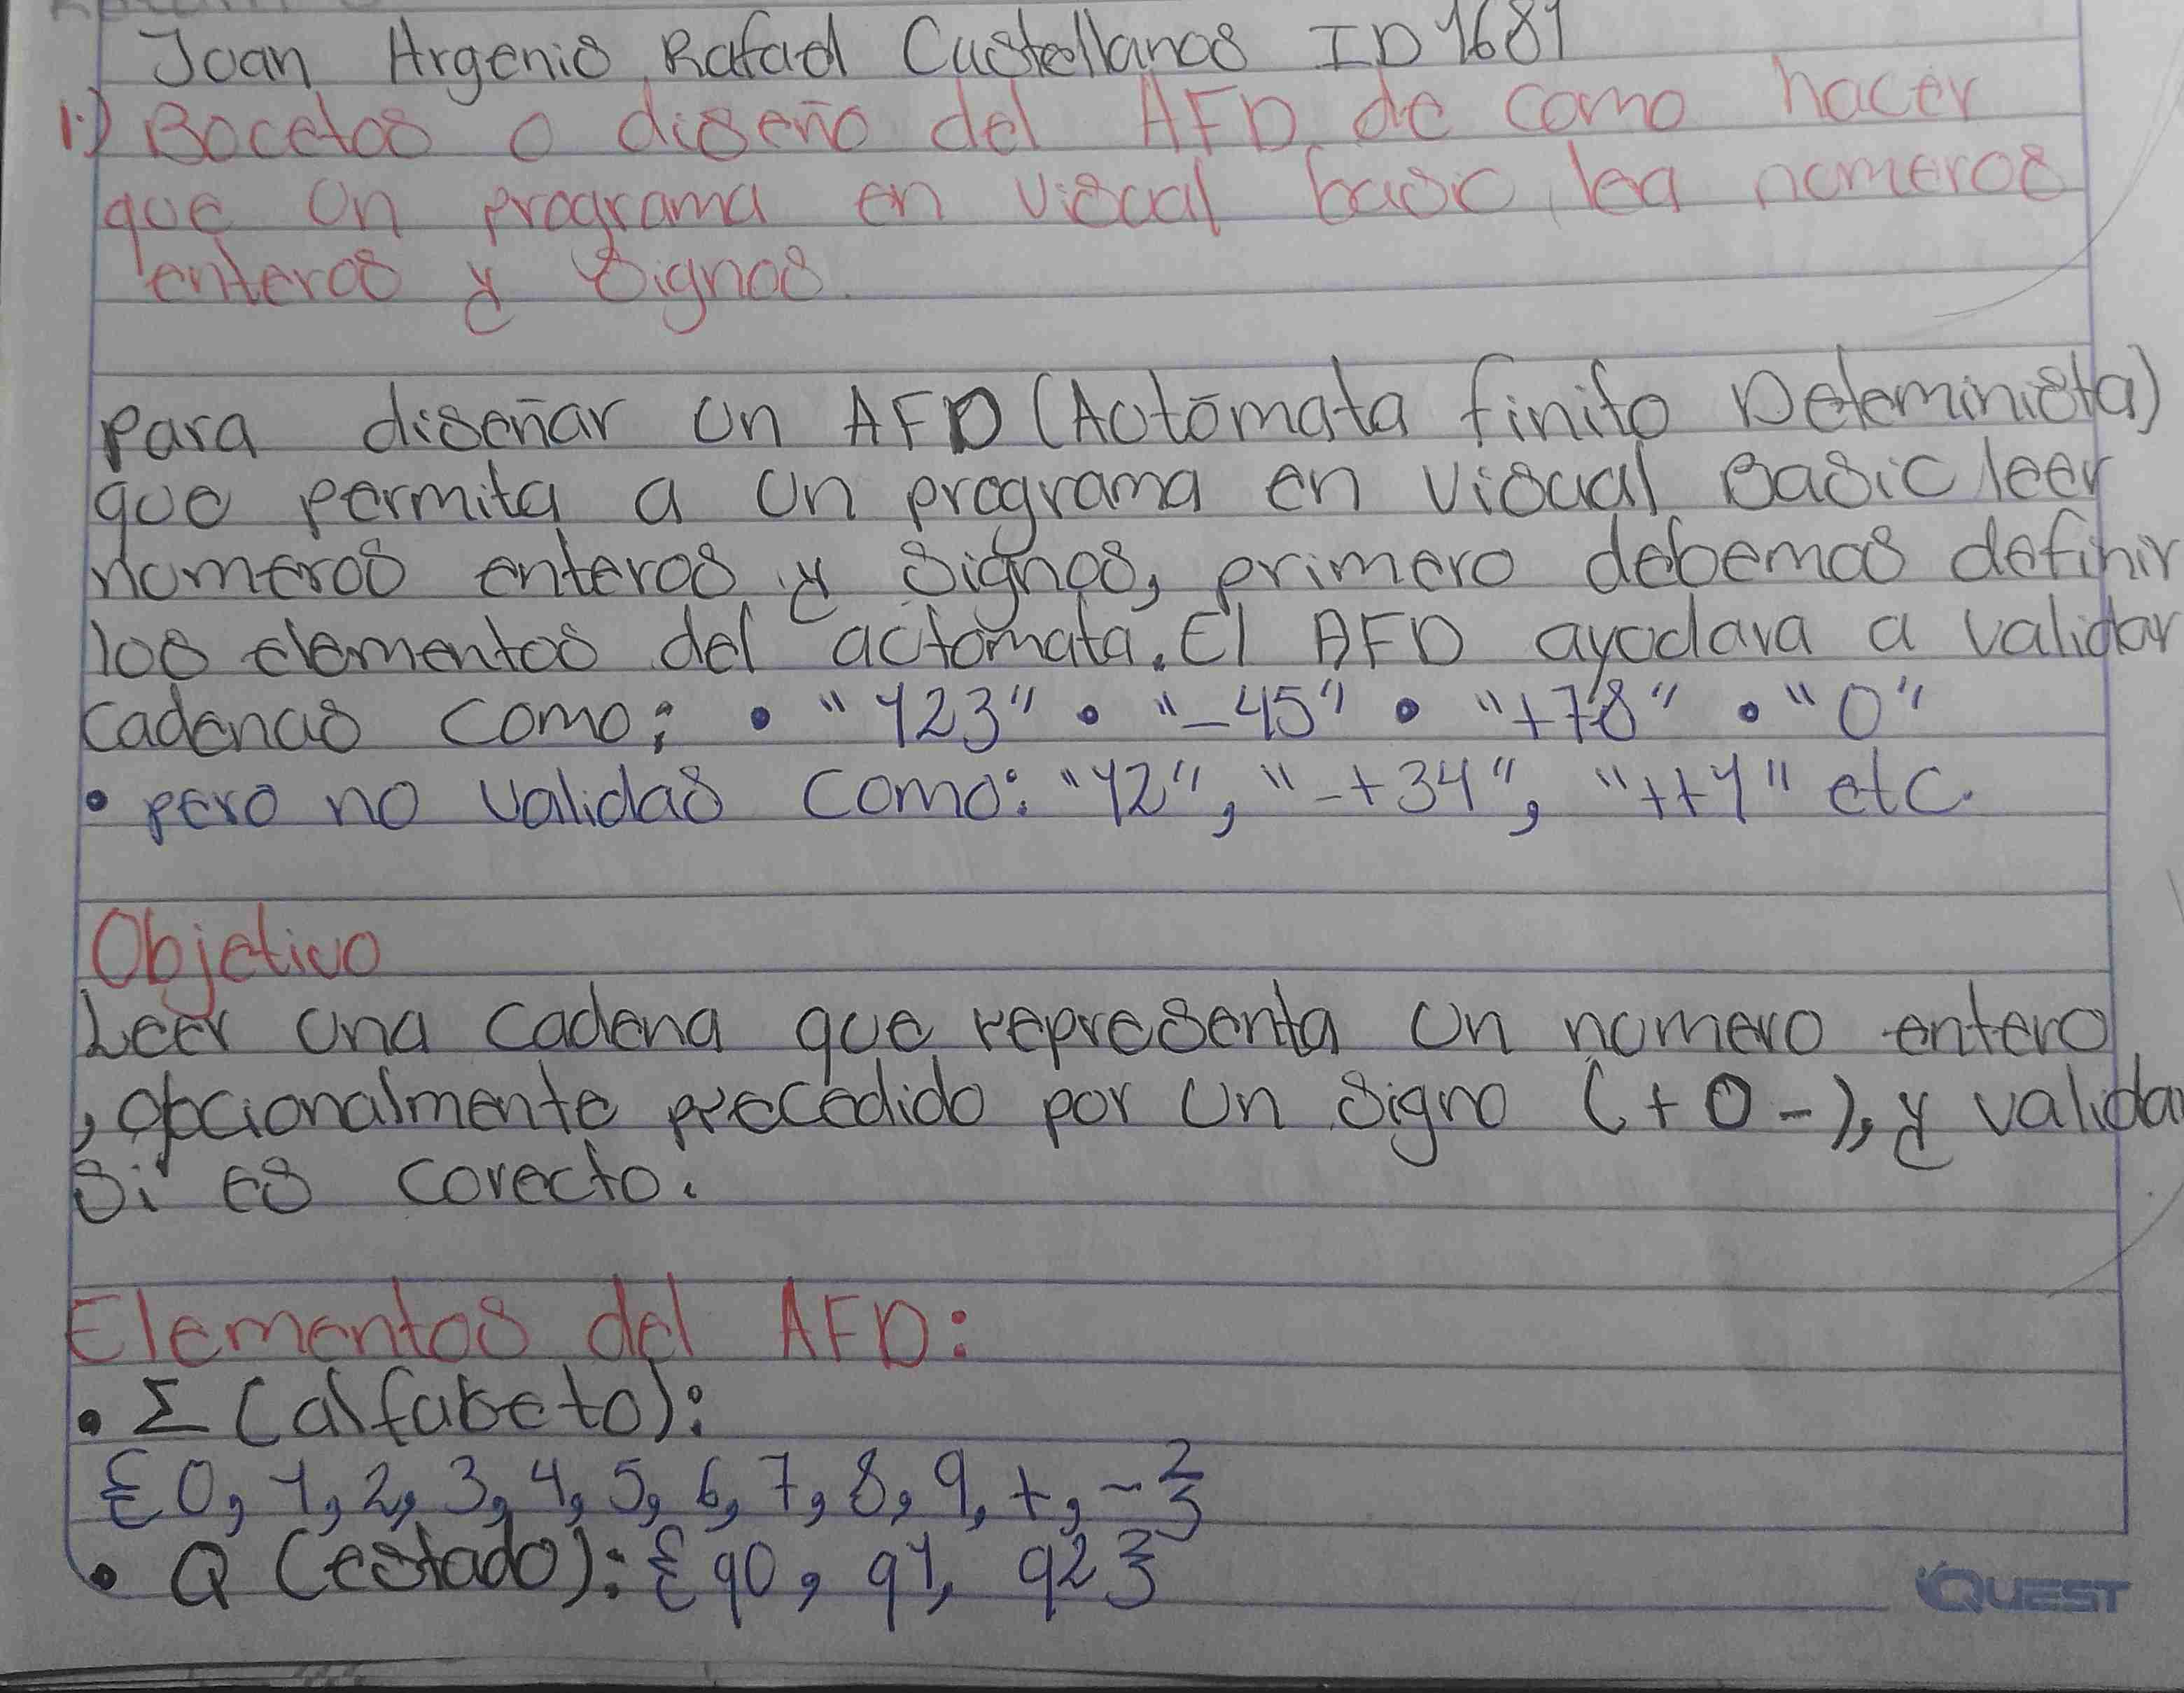 Joan Argenis Rafael Castellanos ID 1681
1.) Bocetos o diseño del AFD de como hacer
que un programa en visual basic lea numeros
enteros y signos.
para diseñar un AFD (Autómata finito Determinista)
que permita a un programa en visual Basic leer
numeros enteros y signos, primero debemos definir
los elementos del autómata. El AFD ayudava a validar
cadenas como: • "123" • "-45" • "+78" • "0"
• pero no validas como: "12", "-+34", "++1" etc.
Objetivo
Leer una cadena que representa un numero entero
, opcionalmente precedido por un signo (+ o -), y valida
si es corecto.
Elementos del AFD:
• Σ (alfabeto):
{0, 1, 2, 3, 4, 5, 6, 7, 8, 9, +, -}
• Q (estado): {q0, q1, q2}
QUEST